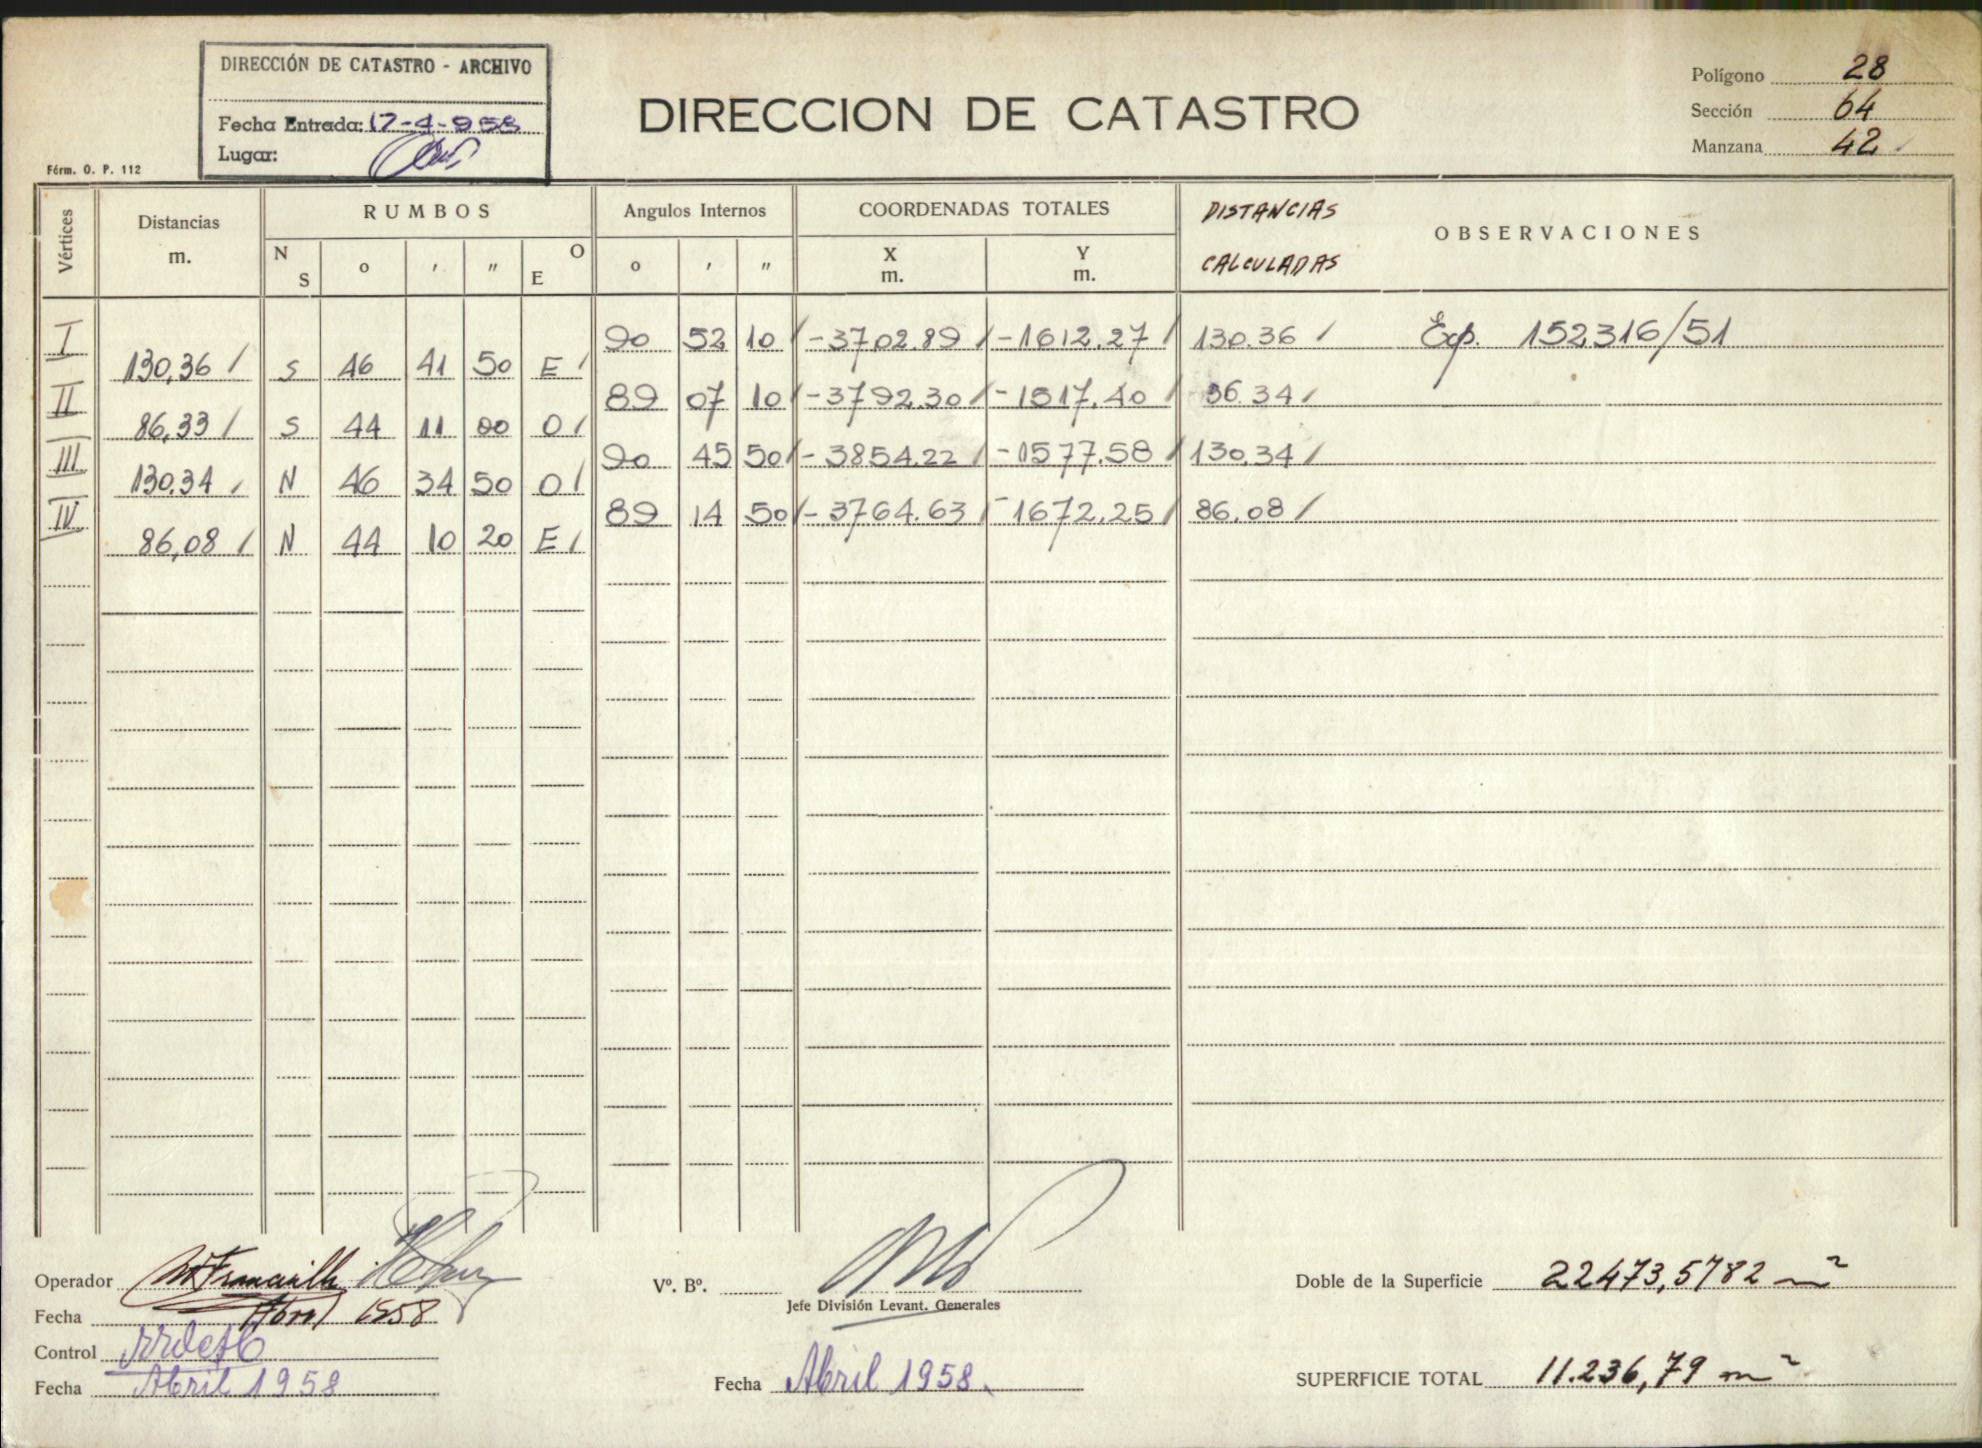 DIRECCIÓN DE CATASTRO - ARCHIVO
Fecha Entrada: 17-4-958
Lugar:
Fórm. O. P. 112
DIRECCION DE CATASTRO
Polígono 28
Sección 64
Manzana 42
Vértices Distancias m. RUMBOS Angulos Internos COORDENADAS TOTALES DISTANCIAS CALCULADAS OBSERVACIONES
N S o ' " O E o ' " X m. Y m.
I 90 52 10 -3702.89 -1612.27 130.36 Exp. 152316/51
130,36 S 46 41 50 E
II 89 07 10 -3792.30 -1517.40 86.34
86,33 S 44 11 00 O
III 90 45 50 -3854.22 -1577.58 130,34
130,34 N 46 34 50 O
IV 89 14 50 -3764.63 -1672.25 86,08
86,08 N 44 10 20 E
Operador
Fecha Abril 1958
Control
Fecha Abril 1958
Vº. Bº.
Jefe División Levant. Generales
Fecha Abril 1958.
Doble de la Superficie 22473,5782 m²
SUPERFICIE TOTAL 11.236,79 m²